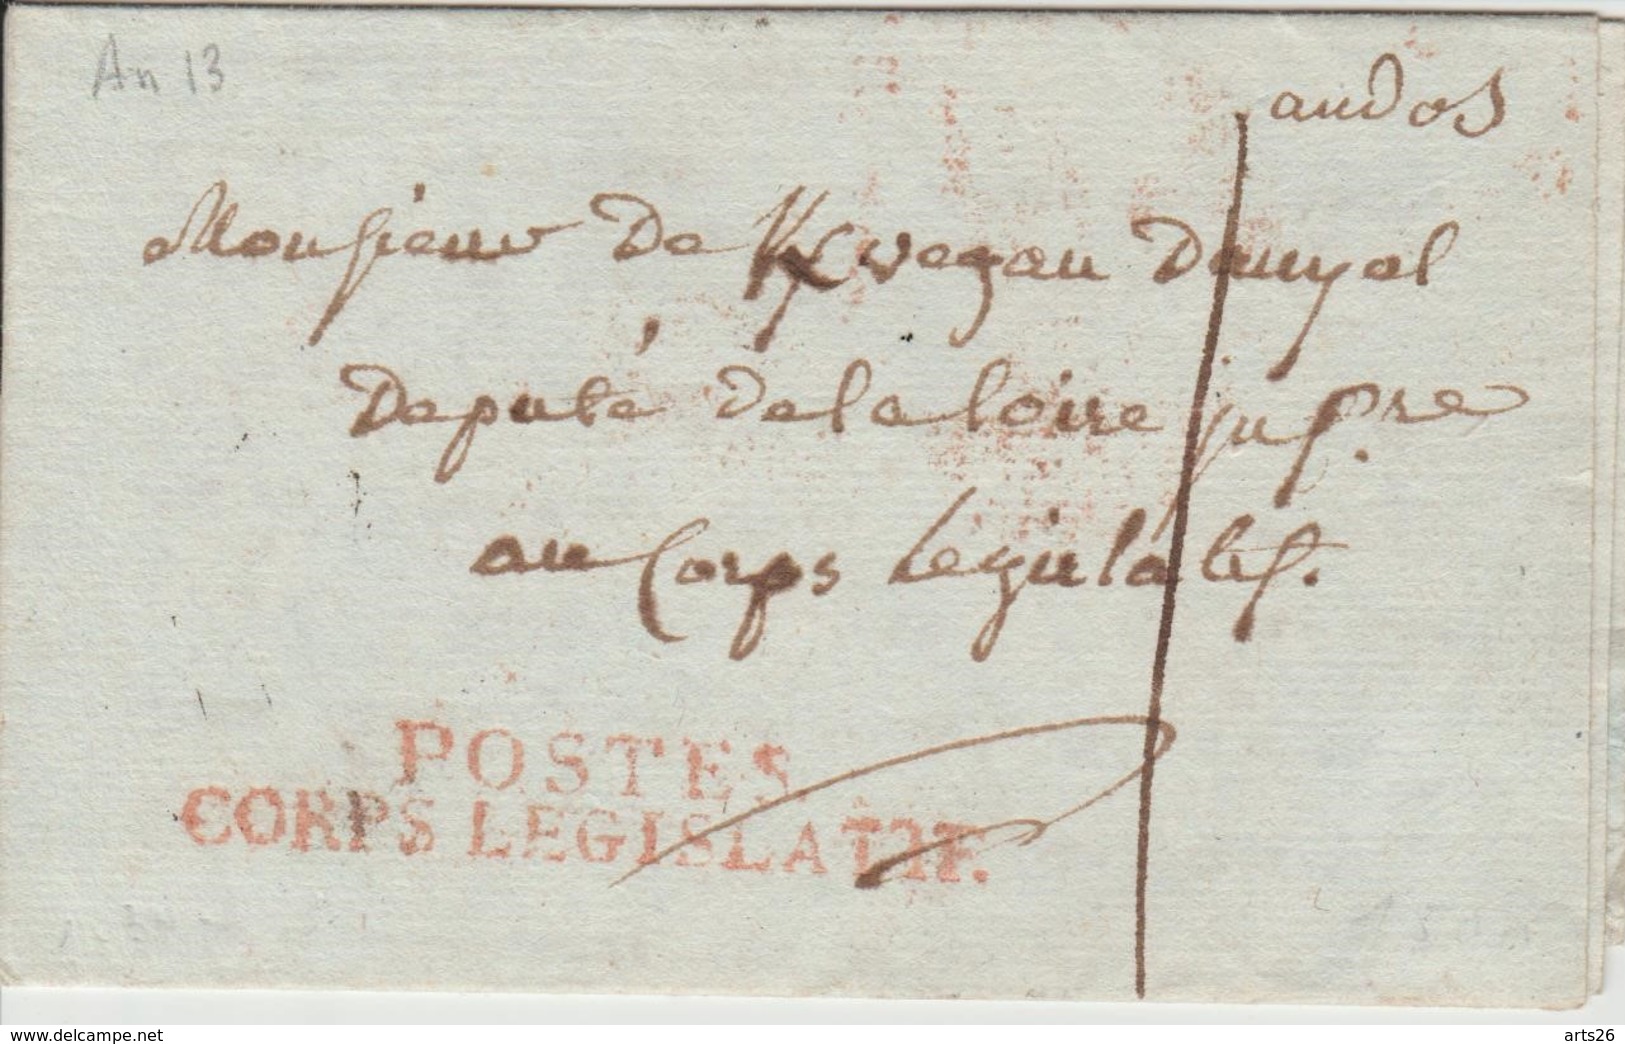 An 13
au dos
Monsieur De Kervegan Danyal
Deputé de la loire jnf.re
au Corps Legislatif.
POSTES
CORPS LEGISLATIF.
www.delcampe.net
arts26